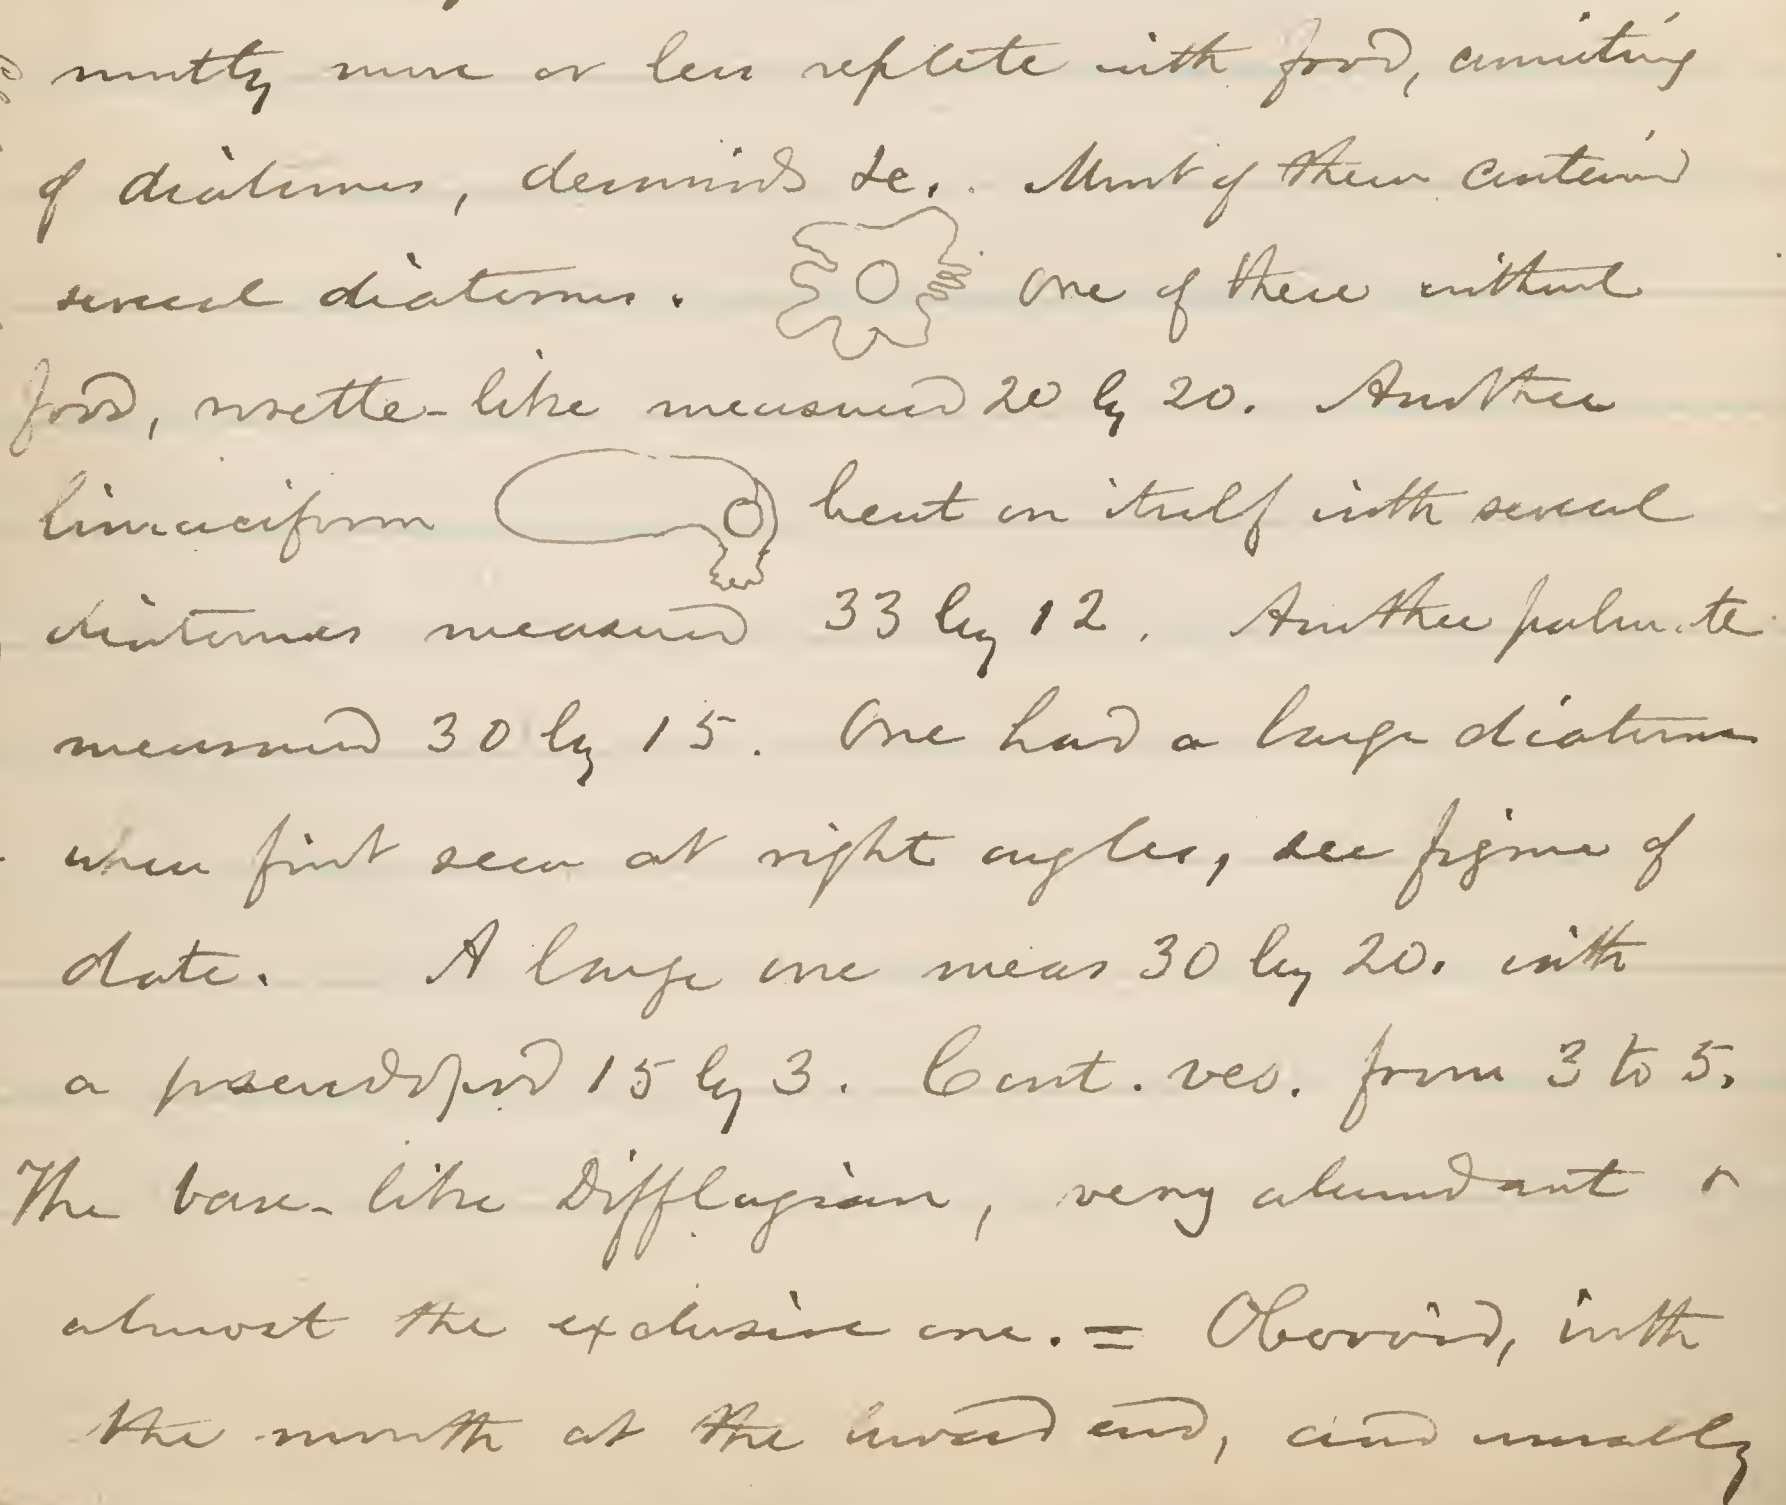 mostly more or less replete with food, consisting
of diatomes, desmids &c. Most of them contained
several diatomes. One of these without
food, rosette-like measured 20 by 20. Another
limaciform bent on itself with several
diatomes measured 33 by 12. Another palmate
measured 30 by 15. One had a large diatome
when first seen at right angles, see figure of
date. A large one meas 30 by 20. with
a pseudopod 15 by 3. Cont. ves. from 3 to 5.
The vase-like Difflugian, very abundant &
almost the exclusive one. = Obovoid, with
the mouth at the broad end, and usually